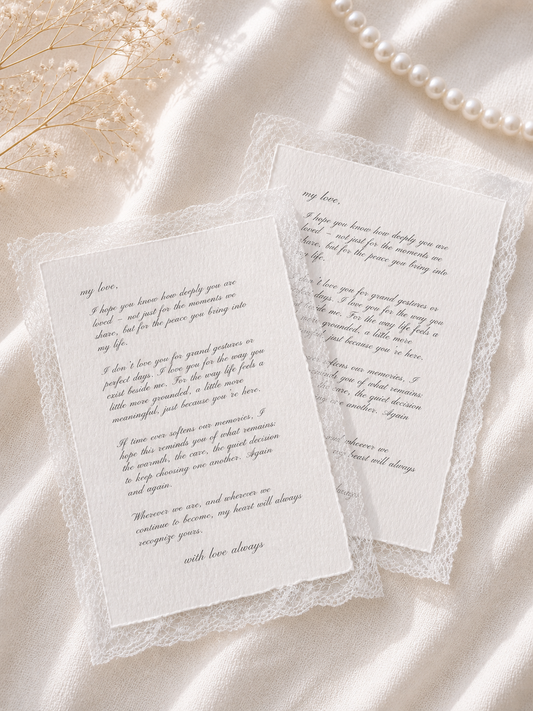 my love,
I hope you know how deeply you are
loved – not just for the moments we
share, but for the peace you bring into
my life.
I don't love you for grand gestures or
perfect days. I love you for the way you
exist beside me. For the way life feels a
little more grounded, a little more
meaningful, just because you're here.
If time ever softens our memories, I
hope this reminds you of what remains:
the warmth, the care, the quiet decision
to keep choosing one another. Again
and again.
Wherever we are, and wherever we
continue to become, my heart will always
recognize yours.
with love always
my love,
I hope you know how deeply you are
loved – not just for the moments we
share, but for the peace you bring into
life.
t love you for grand gestures or
days. I love you for the way you
beside me. For the way life feels a
grounded, a little more
just because you're here.
softens our memories, I
you of what remains:
care, the quiet decision
one another. Again
wherever we
heart will always
always